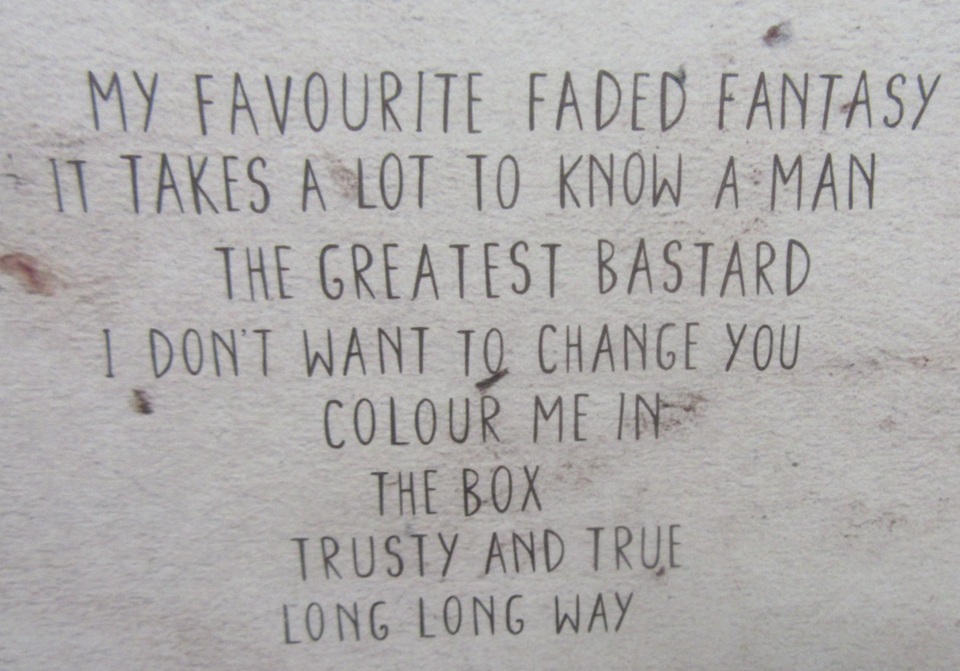 MY FAVOURITE FADED FANTASY
IT TAKES A LOT TO KNOW A MAN
THE GREATEST BASTARD
I DON'T WANT TO CHANGE YOU
COLOUR ME IN
THE BOX
TRUSTY AND TRUE
LONG LONG WAY